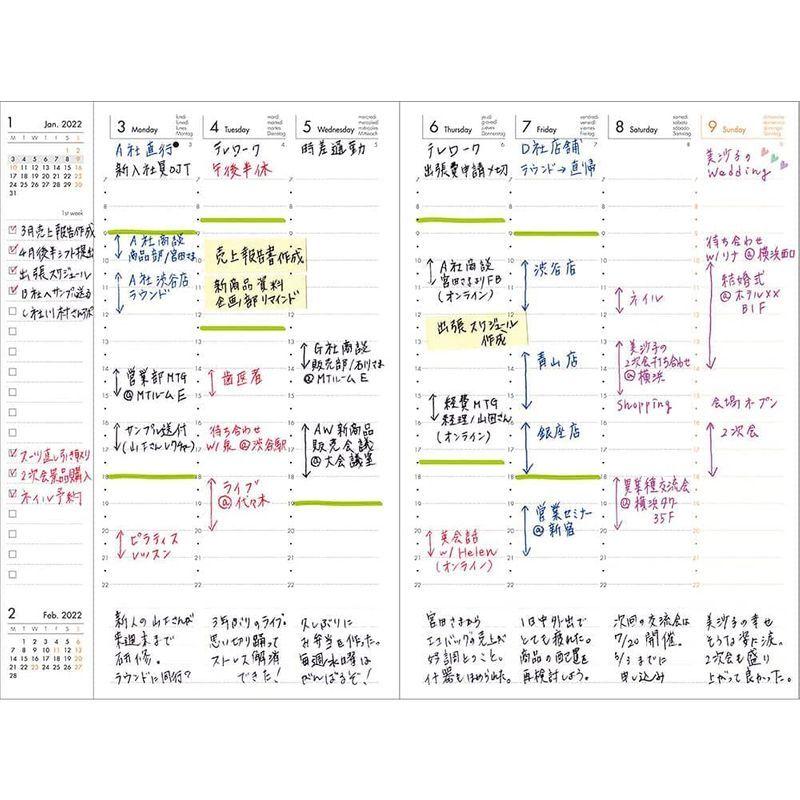 1 Jan. 2022
M T W T F S S
1 2
3 4 5 6 7 8 9
10 11 12 13 14 15 16
17 18 19 20 21 22 23
24 25 26 27 28 29 30
31
1st week
3月売上報告作成
4月後半シフト提出
出張スケジュール
B社へサンプル送る
スーツ直し引き取り
2次会景品購入
ネイル予約
2 Feb. 2022
M T W T F S S
1 2 3 4 5 6
7 8 9 10 11 12 13
14 15 16 17 18 19 20
21 22 23 24 25 26 27
28
3 Monday
A社直行
新入社員OJT
A社商談
商品部/宮田さま
A社渋谷店
ラウンド
営業部MTG
@MTルームE
サンプル送付
(山下さんレクチャー)
ピラティス
レッスン
新人の山下さんが
来週末まで
研修。
ラウンドに同行?
4 Tuesday
テレワーク
午後半休
売上報告書作成
新商品資料
企画部リマインド
歯医者
待ち合わせ
w/泉@渋谷駅
ライブ
@代々木
3年ぶりのライブ。
思い切り踊って
ストレス解消
できた!
5 Wednesday
時差通勤
G社商談
販売部/石川さま
@MTルームE
AW新商品
販売会議
@大会議室
久しぶりに
お弁当を作った。
毎週水曜は
がんばるぞ!
6 Thursday
テレワーク
出張費申請〆切
A社商談
宮田さまよりFB
(オンライン)
出張スケジュール
作成
経費MTG
経理/山田さん
(オンライン)
英会話
w/Helen
(オンライン)
宮田さまから
エコバッグの売上が
好調とのこと。
什器もほめられた。
7 Friday
D社店舗
ラウンド→直帰
渋谷店
青山店
銀座店
営業セミナー
@新宿
1日中外出で
とても疲れた。
商品の配置を
再検討しよう。
8 Saturday
ネイル
美沙子の
2次会打ち合わせ
@横浜
Shopping
異業種交流会
@横浜タワー
35F
次回の交流会は
7/20開催。
5/3までに
申し込み
9 Sunday
美沙子の
Wedding
待ち合わせ
w/リナ@横浜西口
結婚式
@ホテル××
B1F
会場オープン
2次会
美沙子の幸せ
そうな姿に涙。
2次会も盛り
上がって良かった。